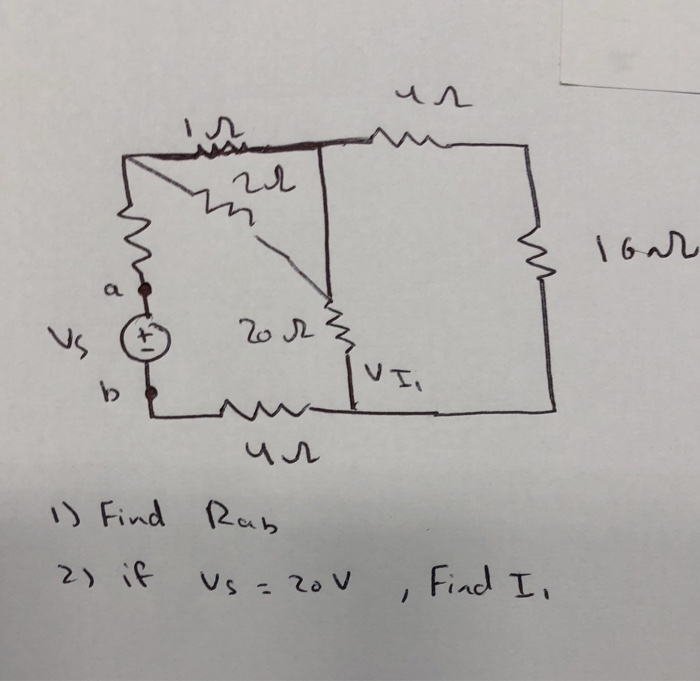 4Ω
1Ω
2Ω
16Ω
a
20Ω
Vs
I₁
b
4Ω
1) Find Rab
2) if Vs = 20V , Find I₁